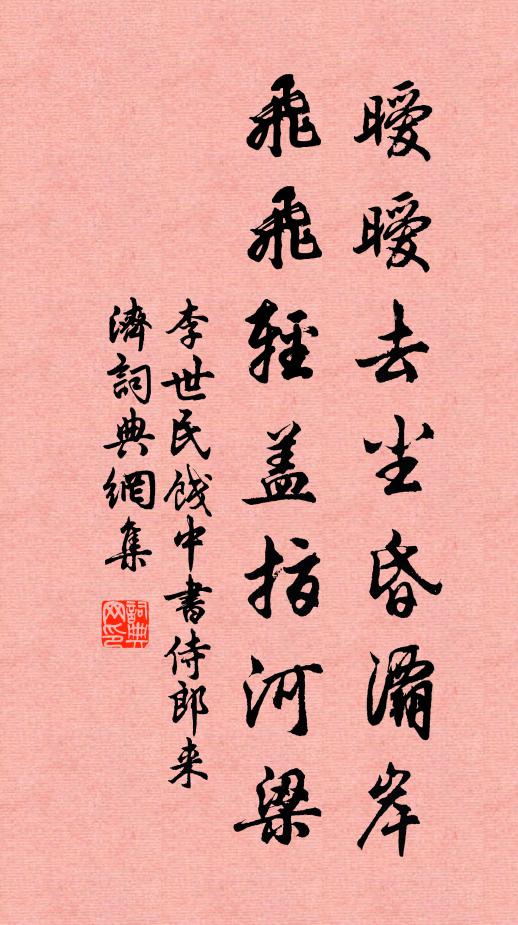 曖曖去尘昏灞岸
飛飛輕盖指河梁
李世民餞中書侍郎来
濟詞典網集
詞典网印